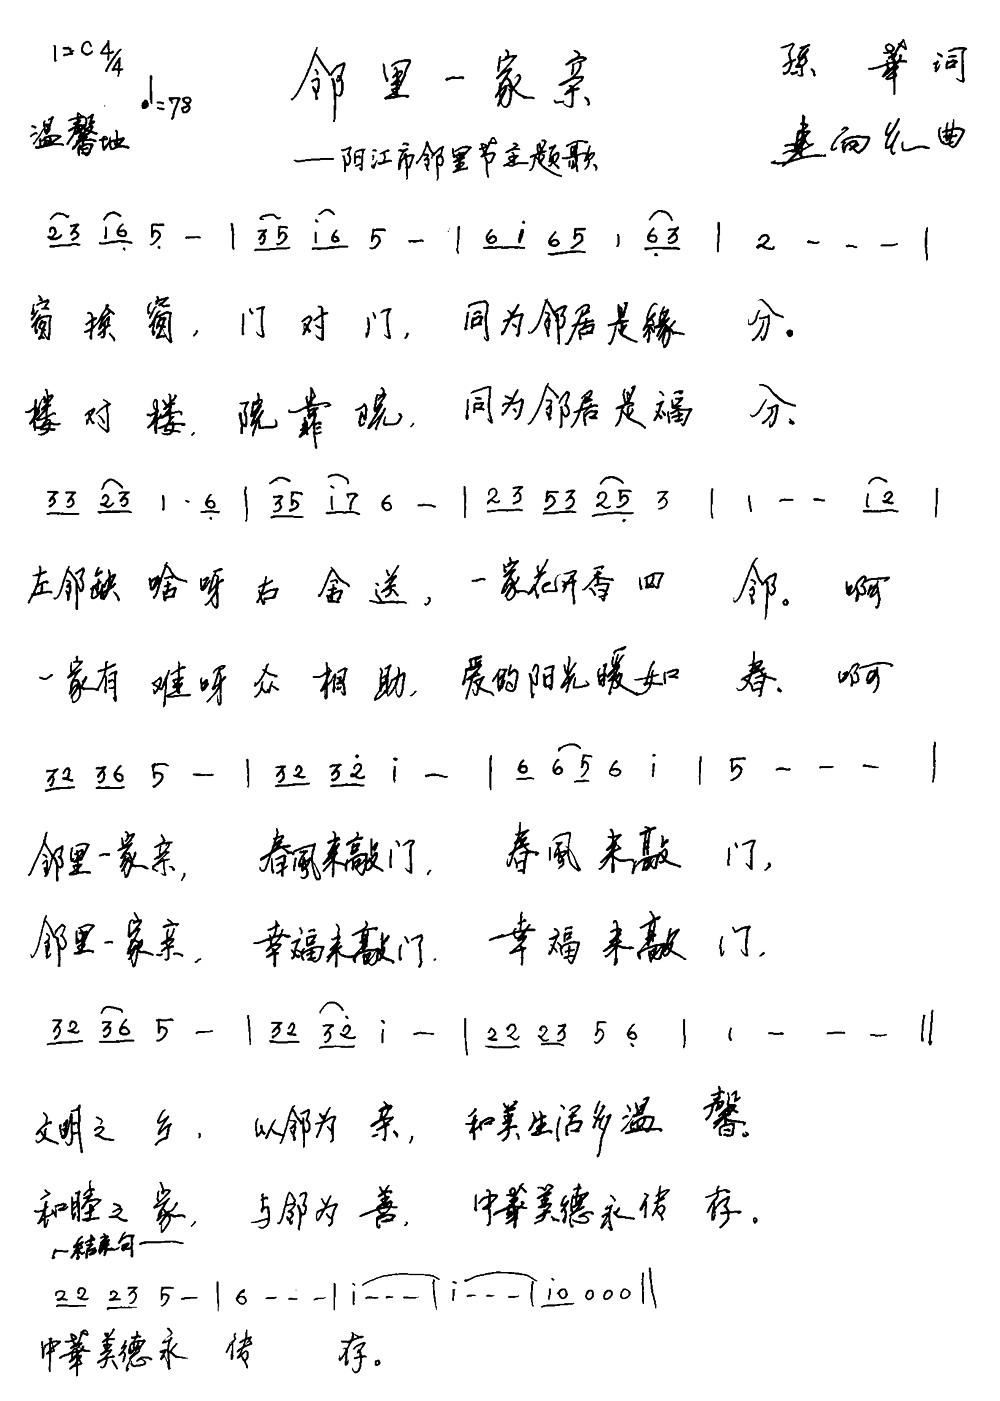 1=C 4/4
♩=78
温馨地
邻里一家亲
——阳江市邻里节主题歌
孫華词
向 曲
23 i6 5 - | 35 i6 5 - | 6i 65 1 63 | 2 - - - |
窗挨窗，门对门，同为邻居是緣分。
楼对楼，院靠院，同为邻居是福分。
33 23 1· 6 | 35 i7 6 - | 23 53 25 3 | 1 - - i2 |
左邻缺啥呀右舍送，一家花开香四邻。啊
一家有难呀众相助，爱的阳光暖如春。啊
32 36 5 - | 32 32 i - | 6 65 6 i | 5 - - - |
邻里一家亲，春風来敲门，春風来敲门，
邻里一家亲，幸福来敲门，幸福来敲门，
32 36 5 - | 32 32 i - | 22 23 5 6 | 1 - - - ||
文明之乡，以邻为亲，和美生活多温馨。
和睦之家，与邻为善，中華美德永传存。
结束句
22 23 5 - | 6 - - - | i - - - | i - - - | i0 0 0 0 ||
中華美德永传存。